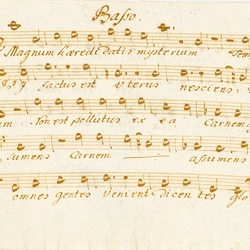 Basso.
Magnum hæreditatis mysterium Tem
factus est Uterus nesciens
Non est pollutus ex ea Carnem
Sumens Carnem assumens
omnes gentes venient dicentes glo